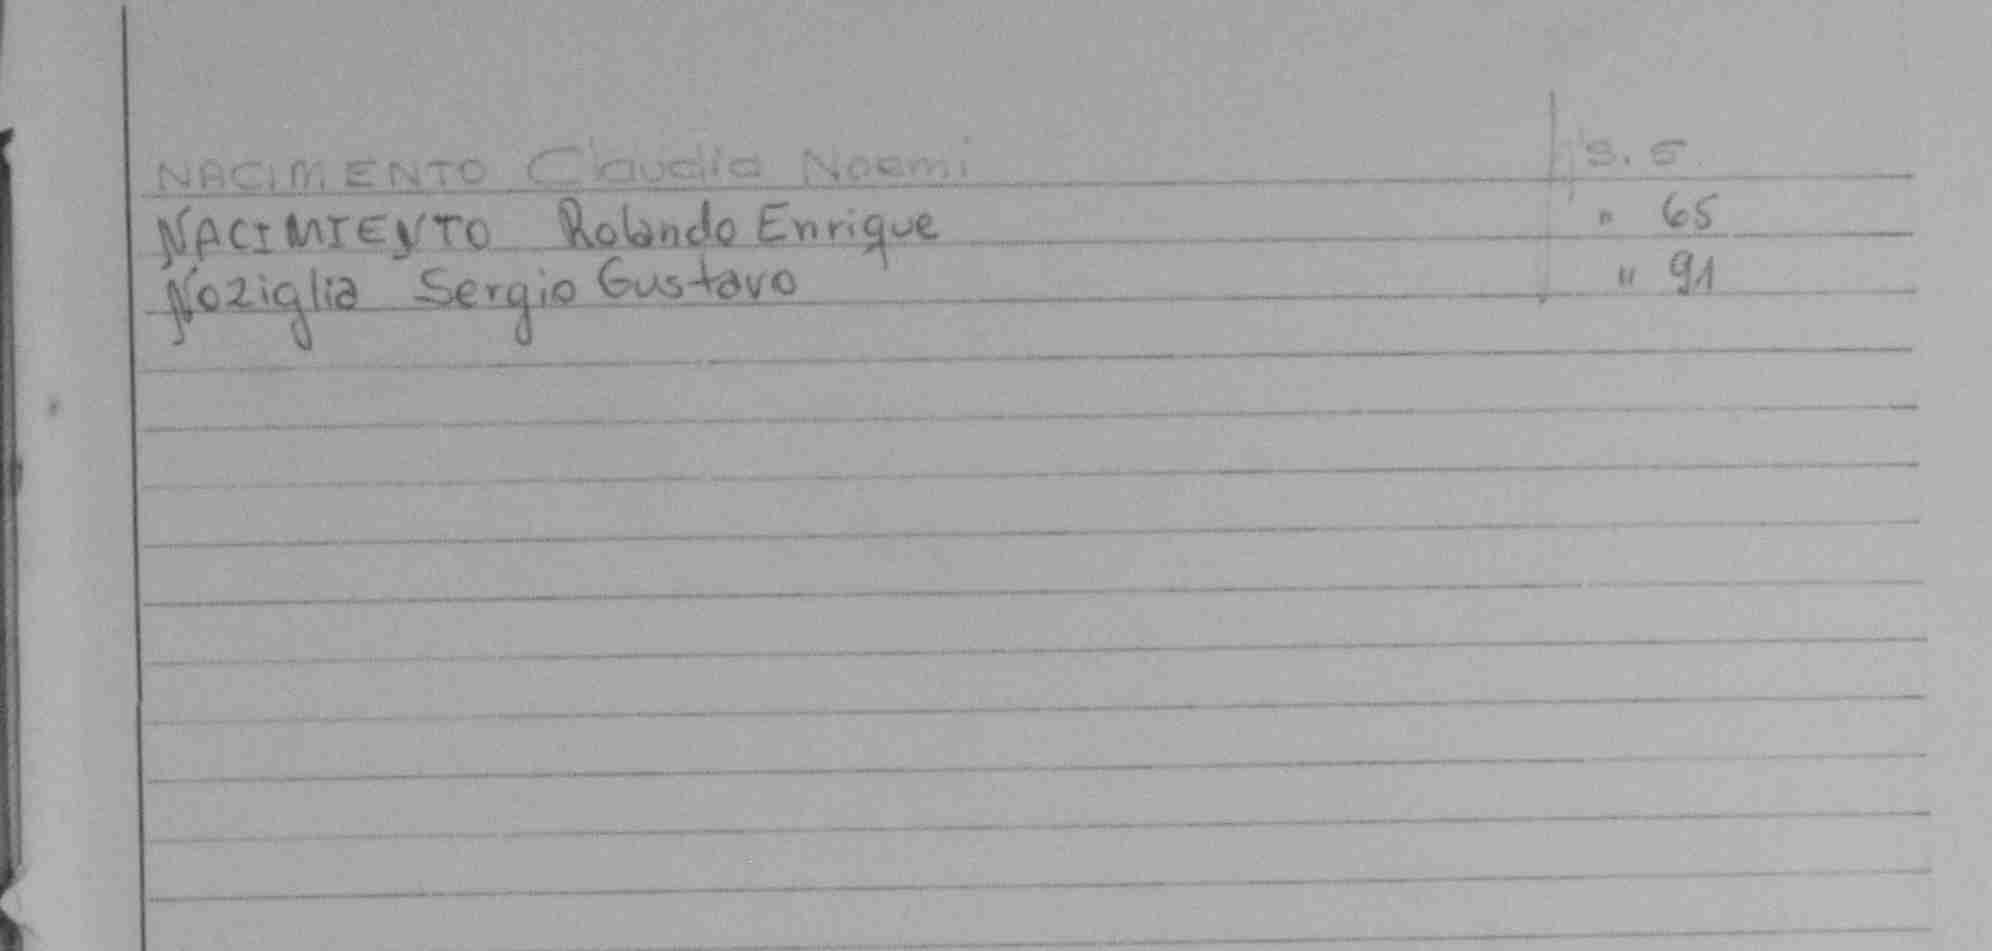 NACIMENTO Claudia Noemi 5
NACIMIENTO Rolando Enrique " 65
Noziglia Sergio Gustavo " 91